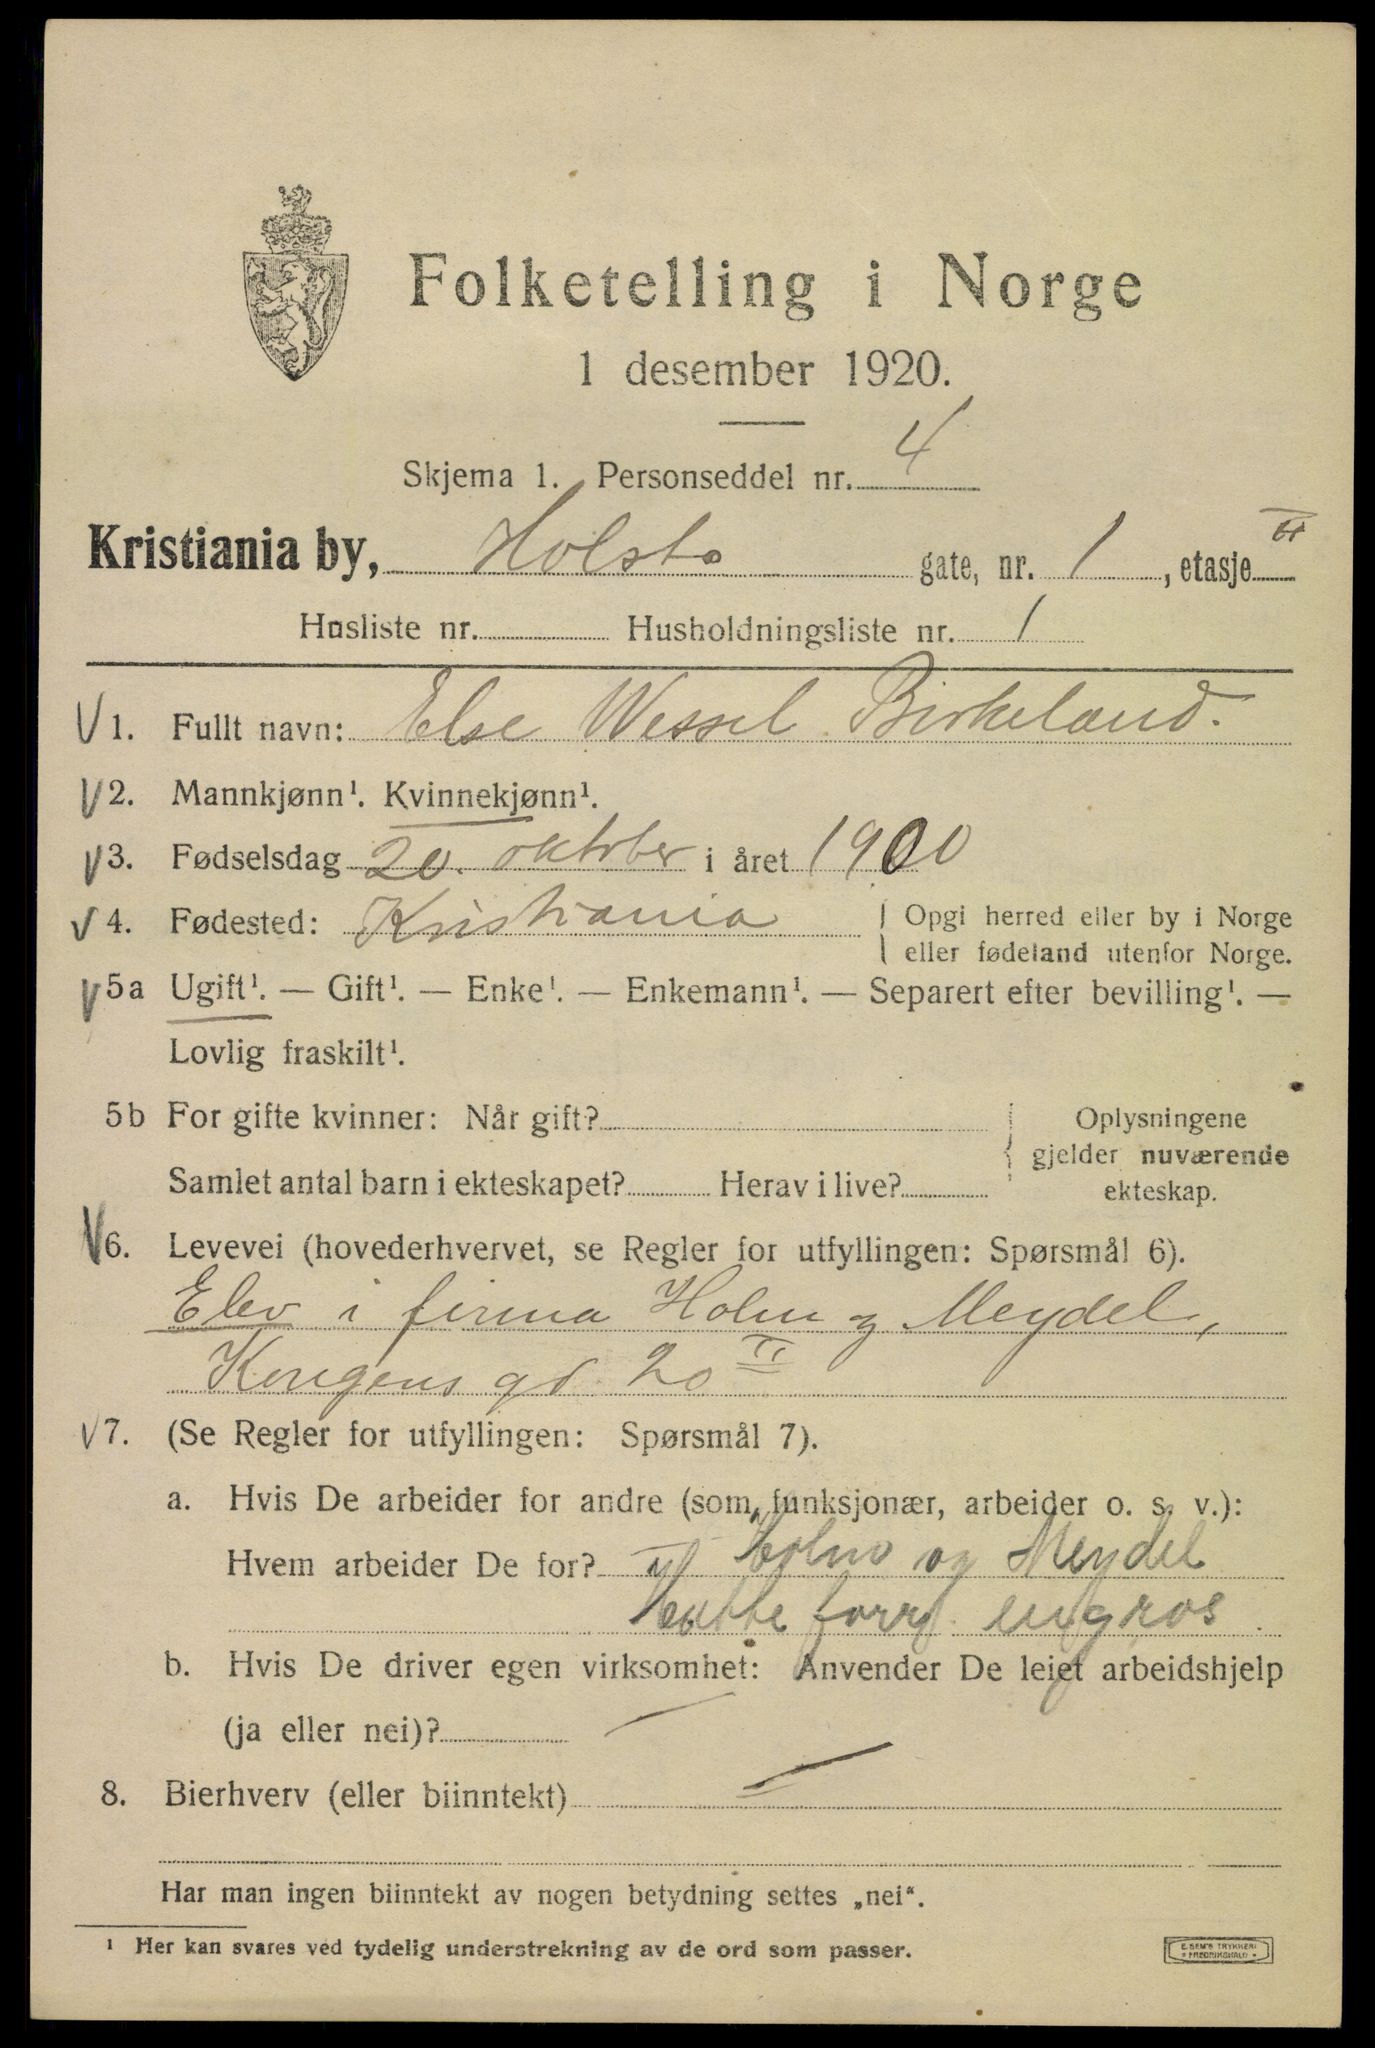 Folketelling i Norge
1 desember 1920.
Skjema 1. Personseddel nr. 4
Kristiania by, Holsts gate, nr. 1, etasje II
Husliste nr. Husholdningsliste nr. 1
V 1. Fullt navn: Else Wessel Birkeland.
V 2. Mannkjønn¹. Kvinnekjønn¹.
V 3. Fødselsdag 20. oktober i året 1900
V 4. Fødested: Kristiania
Opgi herred eller by i Norge
eller fødeland utenfor Norge.
V 5a Ugift¹. — Gift¹. — Enke¹. — Enkemann¹. — Separert efter bevilling¹. —
Lovlig fraskilt¹.
5b For gifte kvinner: Når gift?
Samlet antal barn i ekteskapet? Herav i live?
Oplysningene
gjelder nuværende
ekteskap.
V 6. Levevei (hovederhvervet, se Regler for utfyllingen: Spørsmål 6).
Elev i firma Holm og Meydel,
Kongens gd. 20 II
V 7. (Se Regler for utfyllingen: Spørsmål 7).
a. Hvis De arbeider for andre (som funksjonær, arbeider o. s. v.):
Hvem arbeider De for? Holm og Meydel
Hatte forr. engros
b. Hvis De driver egen virksomhet: Anvender De leiet arbeidshjelp
(ja eller nei)? —
8. Bierhverv (eller biinntekt) —
Har man ingen biinntekt av nogen betydning settes „nei“.
¹ Her kan svares ved tydelig understrekning av de ord som passer.
E. SEM'S TRYKKERI
FREDRIKSHALD